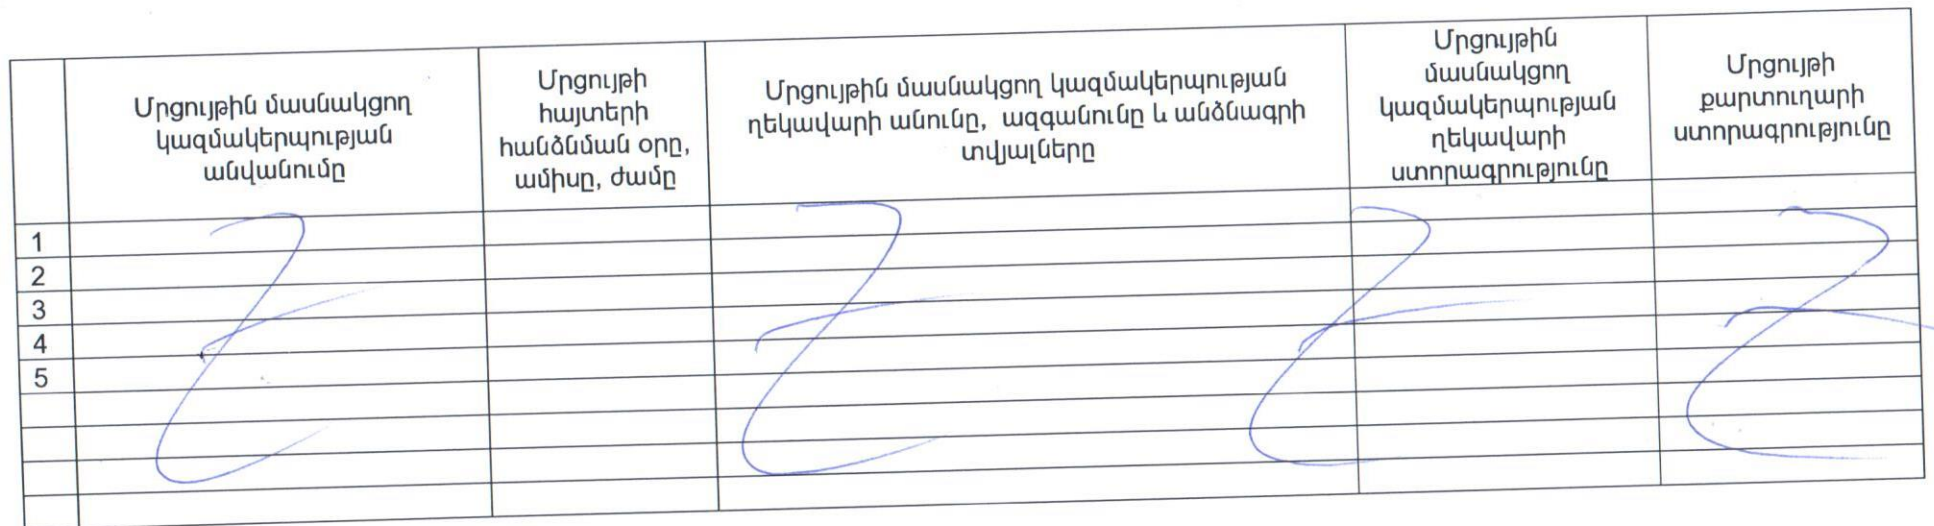 Մրցույթին մասնակցող
կազմակերպության
անվանումը
Մրցույթի
հայտերի
հանձնման օրը,
ամիսը, ժամը
Մրցույթին մասնակցող կազմակերպության
ղեկավարի անունը, ազգանունը և անձնագրի
տվյալները
Մրցույթին
մասնակցող
կազմակերպության
ղեկավարի
ստորագրությունը
Մրցույթի
քարտուղարի
ստորագրությունը
1
2
3
4
5